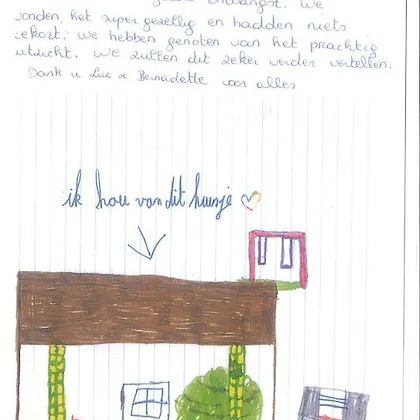 ontvangst. We
vonden het super gezellig en hadden niets
tekort. We hebben genoten van het prachtig
uitzicht. We zullen dit zeker verder vertellen.
Dank u Luc & Bernadette voor alles
ik hou van dit huisje